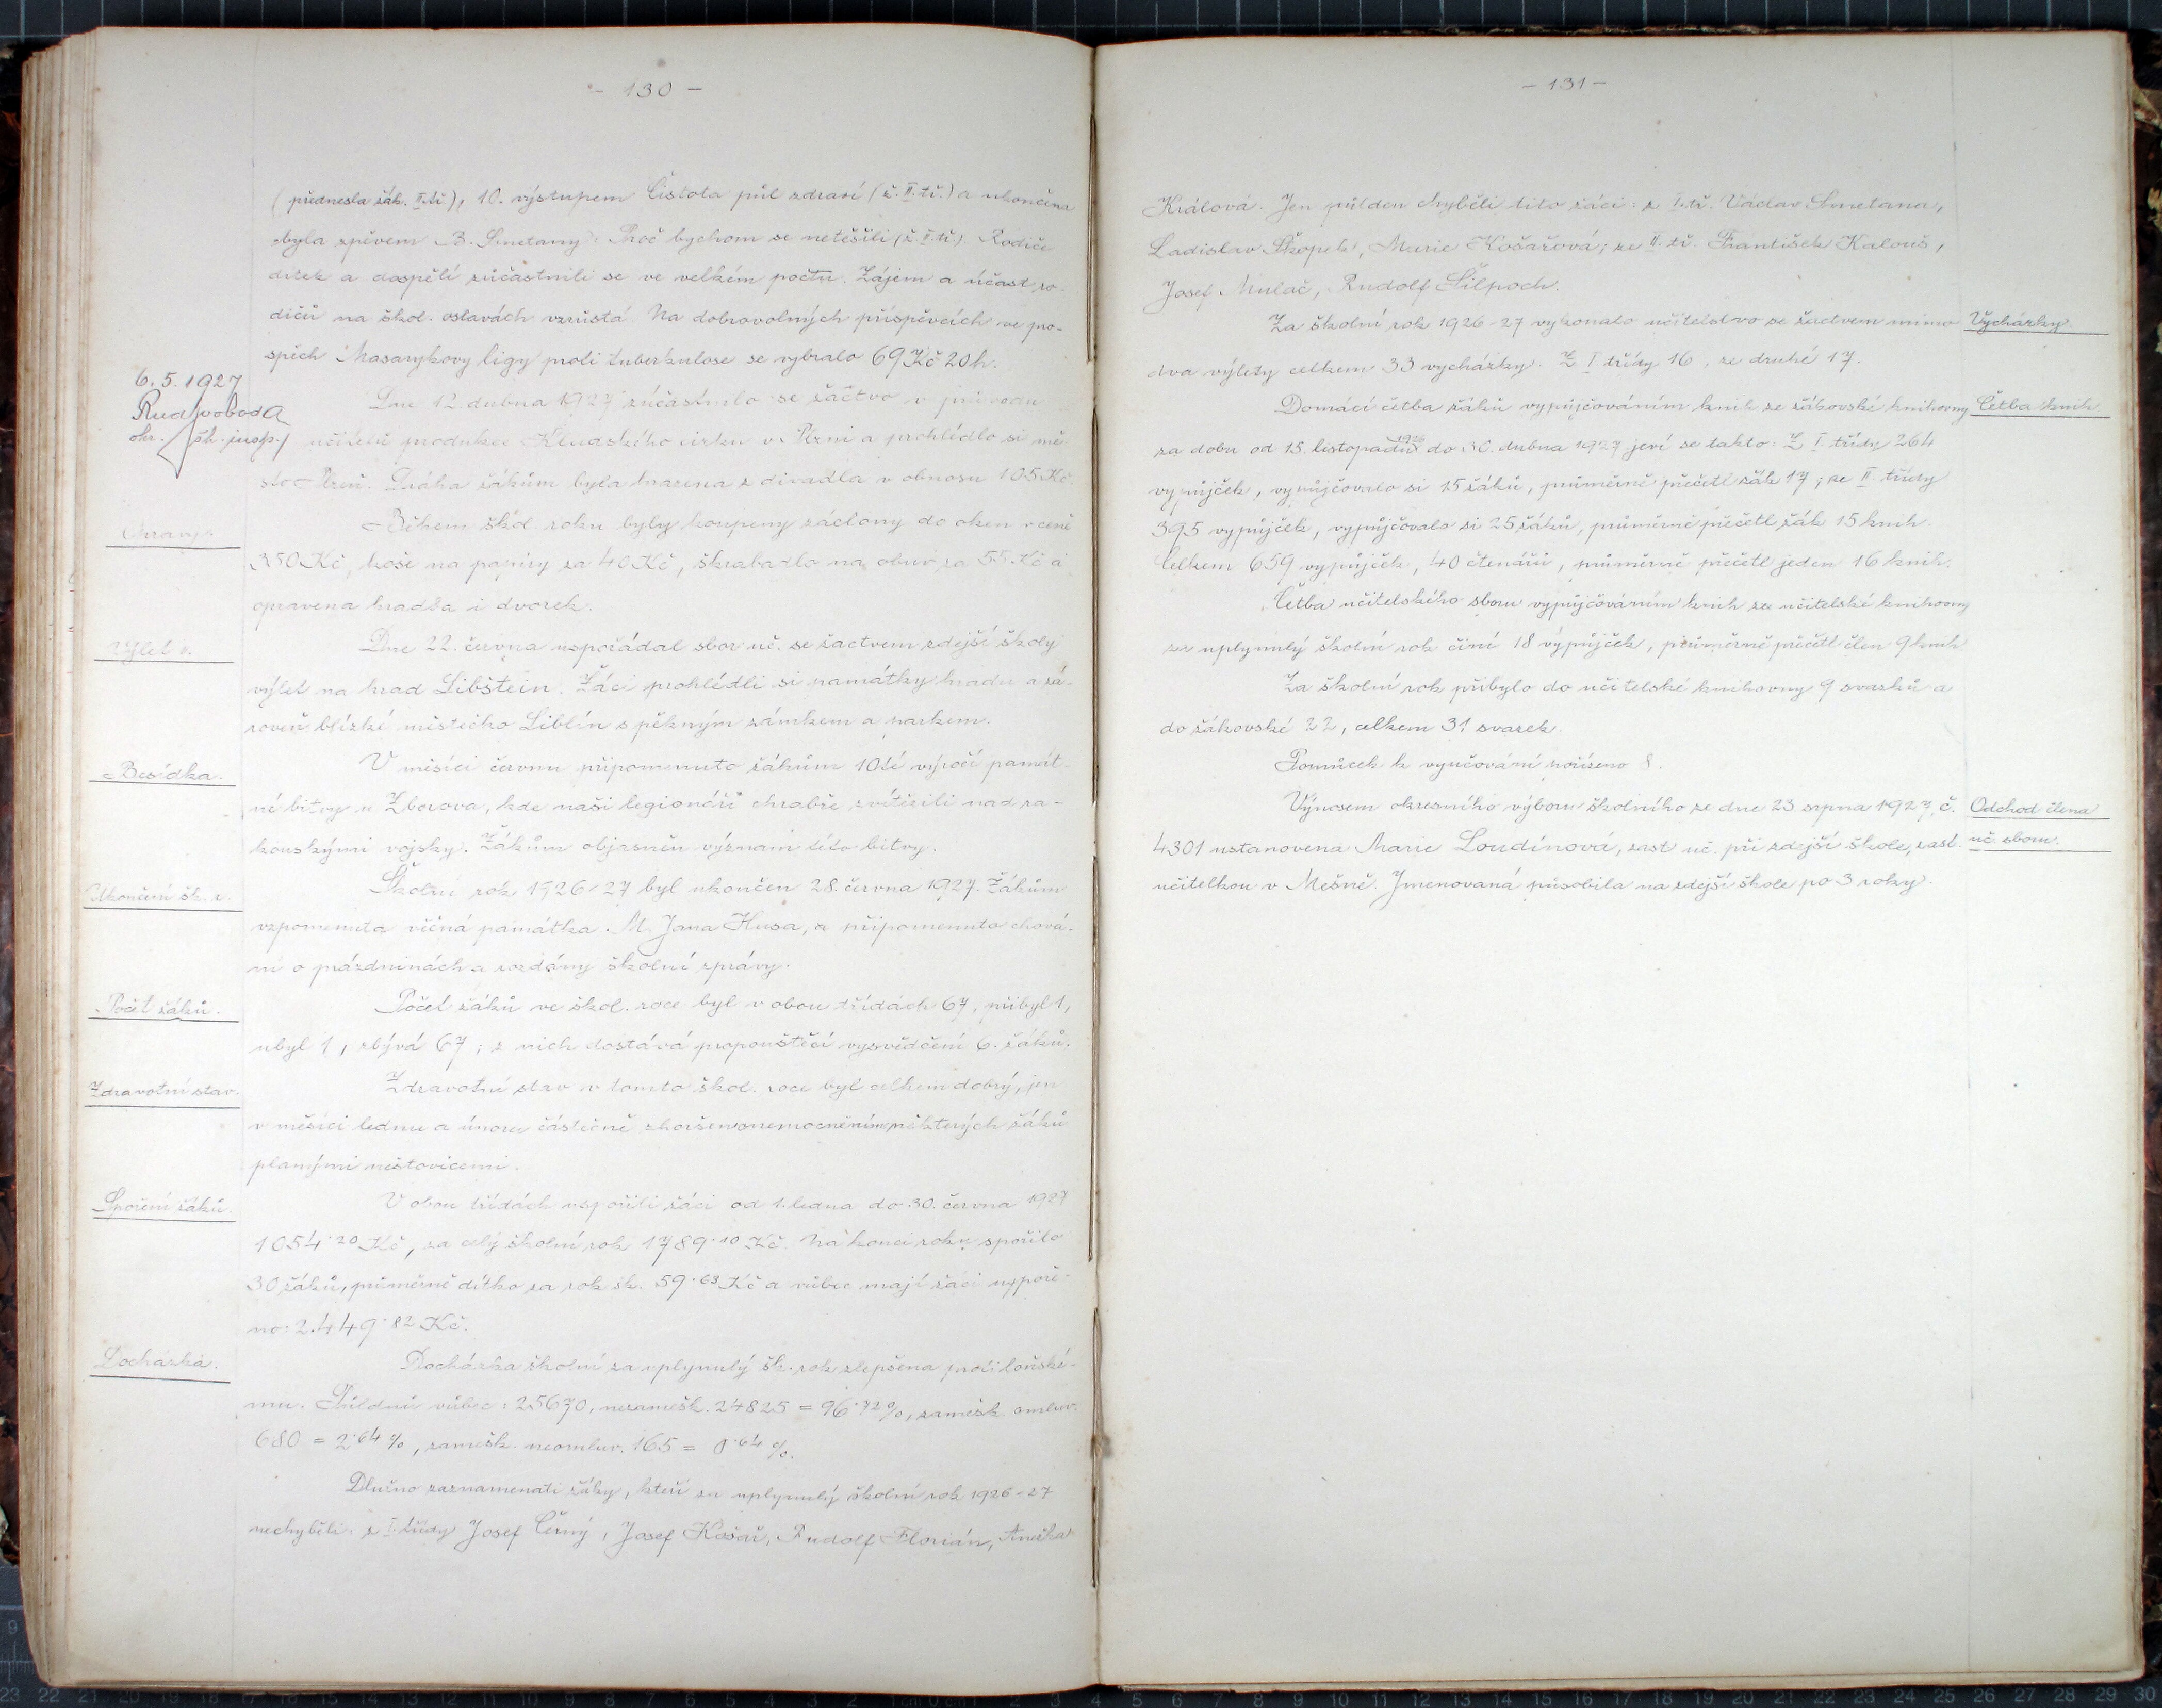 - 130 -
(přednesla žák. II. tř.), 10. výstupem Čistota půl zdraví (ž. II. tř.) a ukončena
byla zpěvem B. Smetany: Proč bychom se netěšili (ž. II. tř.) Rodiče
dítek a dospělí zúčastnili se ve velkém počtu. Zájem a účast ro-
dičů na škol. oslavách vzrůstá. Na dobrovolných příspěvcích ve pro-
spěch Masarykovy ligy proti tuberkulose se vybralo 69 Kč 20 h.
6. 5. 1927
Rud. Svoboda
okr. šk. insp.
Dne 12. dubna 1927 zúčastnilo se žáctvo v průvodu
učitelů produkce Kludského cirku v Plzni a prohlédlo si mě-
sto Plzeň. Dráha žákům byla hrazena z divadla v obnosu 105 Kč.
Během škol roku byly koupeny záclony do oken v ceně
350 Kč, koše na papíry za 40 Kč, škrabadlo na obuv za 55 Kč a
opravena hradba i dvorek.
Výlet
Dne 22. června uspořádal sbor uč. se žactvem zdejší školy
výlet na hrad Libštein. Žáci prohlédli si památky hradu a zá-
roveň blízké městečko Liblín s pěkným zámkem a parkem.
Besídka.
V měsíci červnu připomenuto žákům 10té výročí památ-
né bitvy u Zborova, kde naši legionáři chrabře zvítězili nad ra-
kouskými vojsky. Žákům objasněn význam této bitvy.
Ukončení šk. r.
Školní rok 1926-27 byl ukončen 28. června 1927. Žákům
vzpomenuta věčná památka M. Jana Husa, a připomenuto chová-
ní o prázdninách a rozdány školní zprávy.
Počet žáků.
Počet žáků ve škol. roce byl v obou třídách 67, přibyl 1,
ubyl 1, zbývá 67; z nich dostává propouštěcí vysvědčení 6. žáků.
Zdravotní stav.
Zdravotní stav v tomto škol. roce byl celkem dobrý, jen
v měsíci lednu a únoru částečně zhoršen onemocněním některých žáků
planými neštovicemi.
Spoření žáků.
V obou třídách uspořili žáci od 1. ledna do 30. června 1927
1054·20 Kč, za celý školní rok 1789·10 Kč. Na konci roku spořilo
30 žáků, průměrně dítko za rok šk. 59·63 Kč a vůbec mají žáci uspoře-
no: 2.449·82 Kč.
Docházka.
Docházka školní za uplynulý šk. rok zlepšena proti loňské-
mu. Půldnů vůbec: 25670, nezamešk. 24825 = 96·72%, zamešk omluv.
680 = 2·64 %, zamešk. neomluv. 165 = 0·64 %.
Dlužno zaznamenati žáky, kteří za uplynulý školní rok 1926-27
nechyběli: z I. třídy Josef Černý, Josef Košař, Rudolf Florián, Anežka
- 131 -
Králová. Jen půlden chyběli tito žáci: z I. tř. Václav Smetana,
Ladislav Škopek, Marie Košařová; ze II. tř. František Kalouš,
Josef Mulač, Rudolf Šilpoch.
Za školní rok 1926-27 vykonalo učitelstvo se žactvem mimo
Vycházky.
dva výlety celkem 33 vycházky. Z I. třídy 16, ze druhé 17.
Domácí četba žáků vypůjčováním knih ze žákovské knihovny
Četba knih.
za dobu od 15. listopadu 1926 do 30. dubna 1927 jeví se takto: Z I třídy 264
vypůjček, vypůjčovalo si 15 žáků, průměrně přečetl žák 17; ze II. třídy
395 vypůjček, vypůjčovalo si 25 žáků, průměrně přečetl žák 15 knih.
Celkem 659 vypůjček, 40 čtenářů, průměrně přečetl jeden 16 knih.
Četba učitelského sboru vypůjčováním knih ze učitelské knihovny
za uplynulý školní rok činí 18 výpůjček, průměrně přečetl člen 9 knih
Za školní rok přibylo do učitelské knihovny 9 svazků a
do žákovské 22, celkem 31 svazek.
Pomůcek k vyučování pořízeno 8.
Výnosem okresního výboru školního ze dne 23. srpna 1927, č.
Odchod člena
4301 ustanovena Marie Loudínová, zast uč. při zdejší škole, zast.
uč. sboru.
učitelkou v Mešně. Jmenovaná působila na zdejší škole po 3 roky.